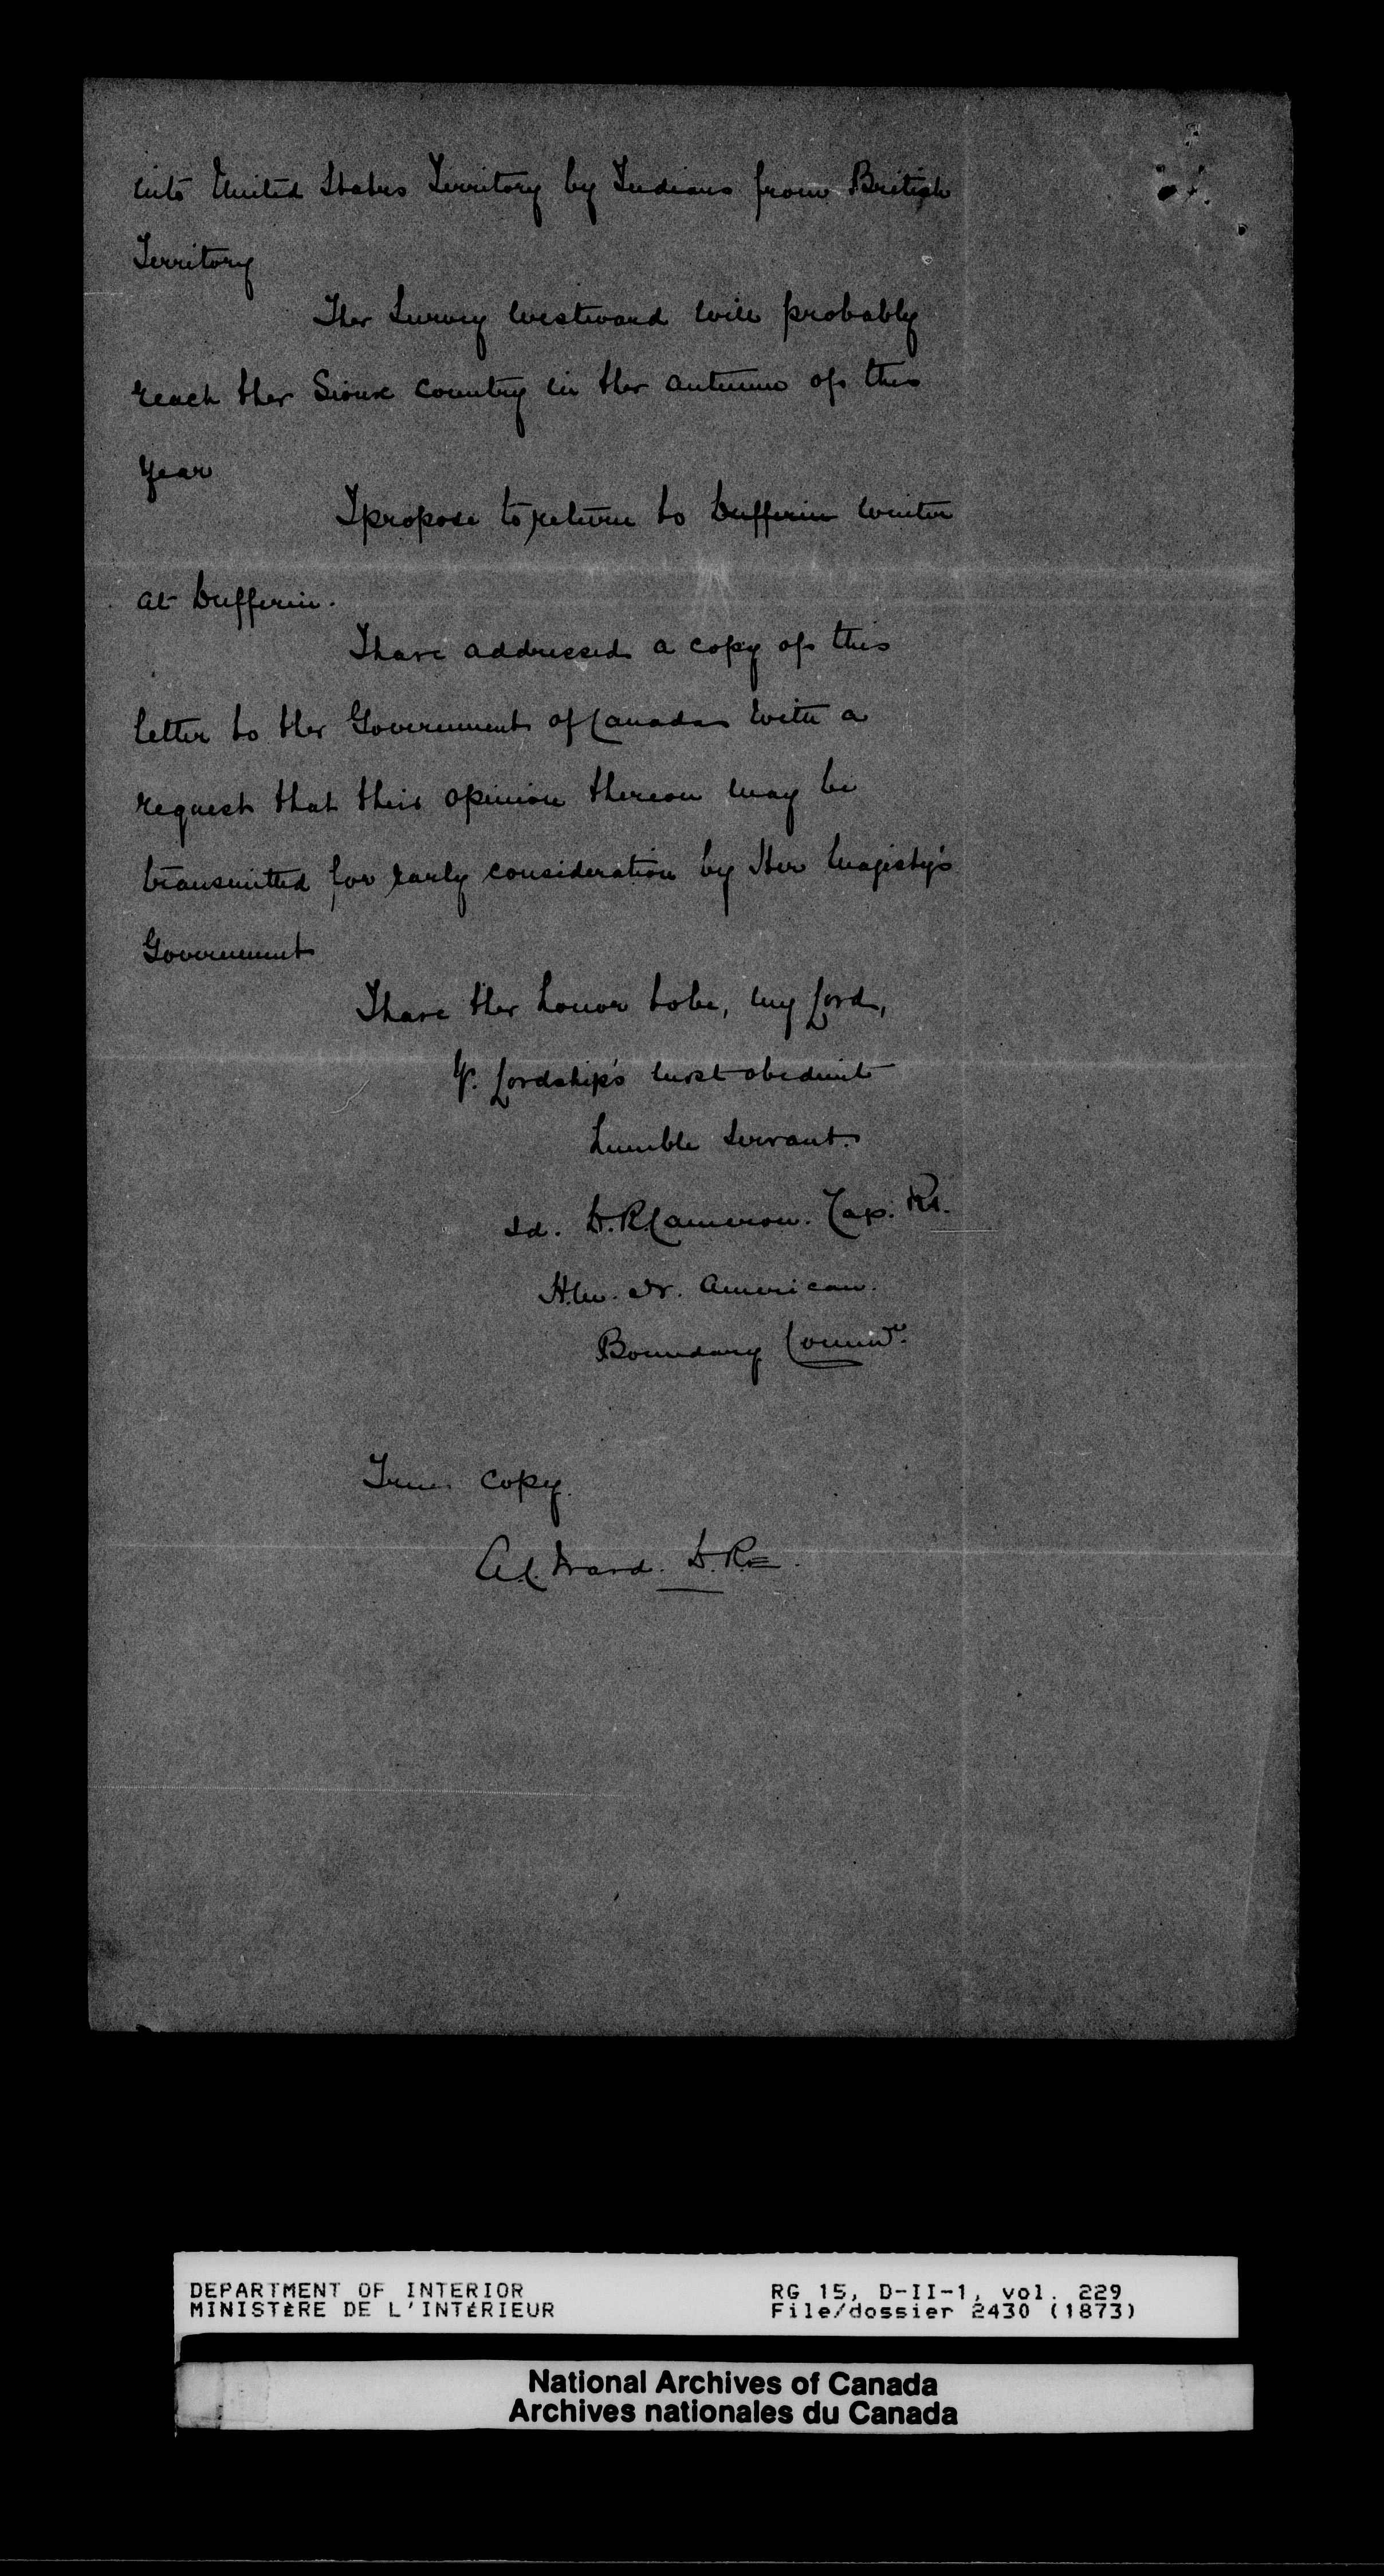 into United States Territory by Indians from British
Territory
The Survey Westward will probably
reach the Sioux country in the autumn of this
Year
I propose to return to Dufferin winter
at Dufferin.
I have addressed a copy of this
letter to the Government of Canada with a
request that their opinion thereon may be
transmitted for early consideration by Her Majesty's
Government
I have the honor to be, my Lord,
Yr. Lordship's most obedient
humble Servant.
sd. D.R. Cameron. Cap. RA.
H.M. Nr. American.
Boundary Commr.
True copy.
A.C. Ward. D.R.E.
DEPARTMENT OF INTERIOR
MINISTÈRE DE L'INTÉRIEUR
RG 15, D-II-1, vol. 229
File/dossier 2430 (1873)
National Archives of Canada
Archives nationales du Canada